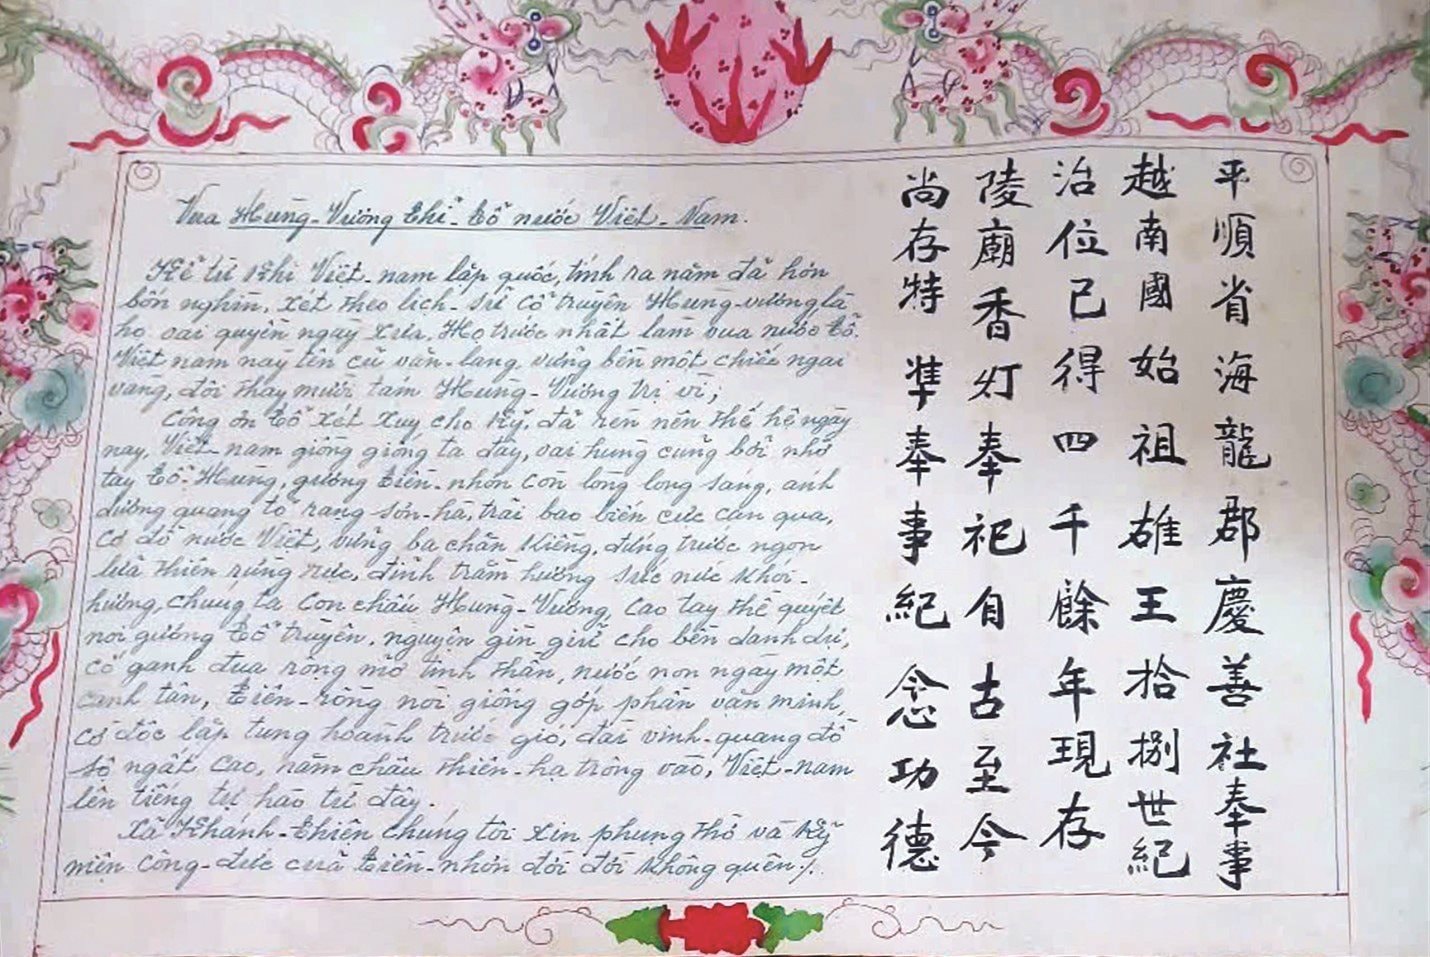 Vua Hùng-Vương thỉ-tổ nước Việt-Nam.
Kể từ khi Việt-nam lập quốc, tính ra năm đã hơn
bốn nghìn, xét theo lịch-sử cổ truyền Hùng-vương là
họ oai quyền ngày xưa. Họ trước nhất làm vua nước tổ.
Việt nam nay tên cũ văn-lang, vững bền một chiếc ngai
vàng, đời thay mười tám Hùng-Vương trị vì;
Công ơn tổ xét suy cho kỹ, đã rèn nên thế hệ ngày
nay. Việt nam giòng giống ta đây, oai hùng cũng bởi nhờ
tay tổ-Hùng, gương tiền-nhơn còn lồng lộng sáng, ánh
dương quang tỏ rạng sơn-hà, trải bao biến cuộc can qua,
Cơ đồ nước Việt, vững ba chân kiềng, đứng trước ngọn
lửa thiên rừng rực, đỉnh trầm hương sực nức khói-
hương, chúng ta con cháu Hùng-Vương, cao tay thề quyết
noi gương tổ truyền, nguyện gìn giữ cho bền danh dự,
cố ganh đua rộng mở tinh thần, nước non ngày một
canh tân, tiên-rồng nòi giống góp phần văn minh,
cờ độc lập tung hoành trước gió, đài vinh-quang đồ
sộ ngất cao, năm châu thiên-hạ trông vào, Việt-nam
lên tiếng tự hào từ đây.
Xã Khánh-thiện chúng tôi xin phụng thờ và kỷ
niệm công-đức của tiền-nhơn đời đời không quên /.
平順省海龍郡慶善社奉事
越南國始祖雄王拾捌世紀
治位已得四千餘年現存
陵廟香灯奉祀自古至今
尚存特準奉事紀念功德